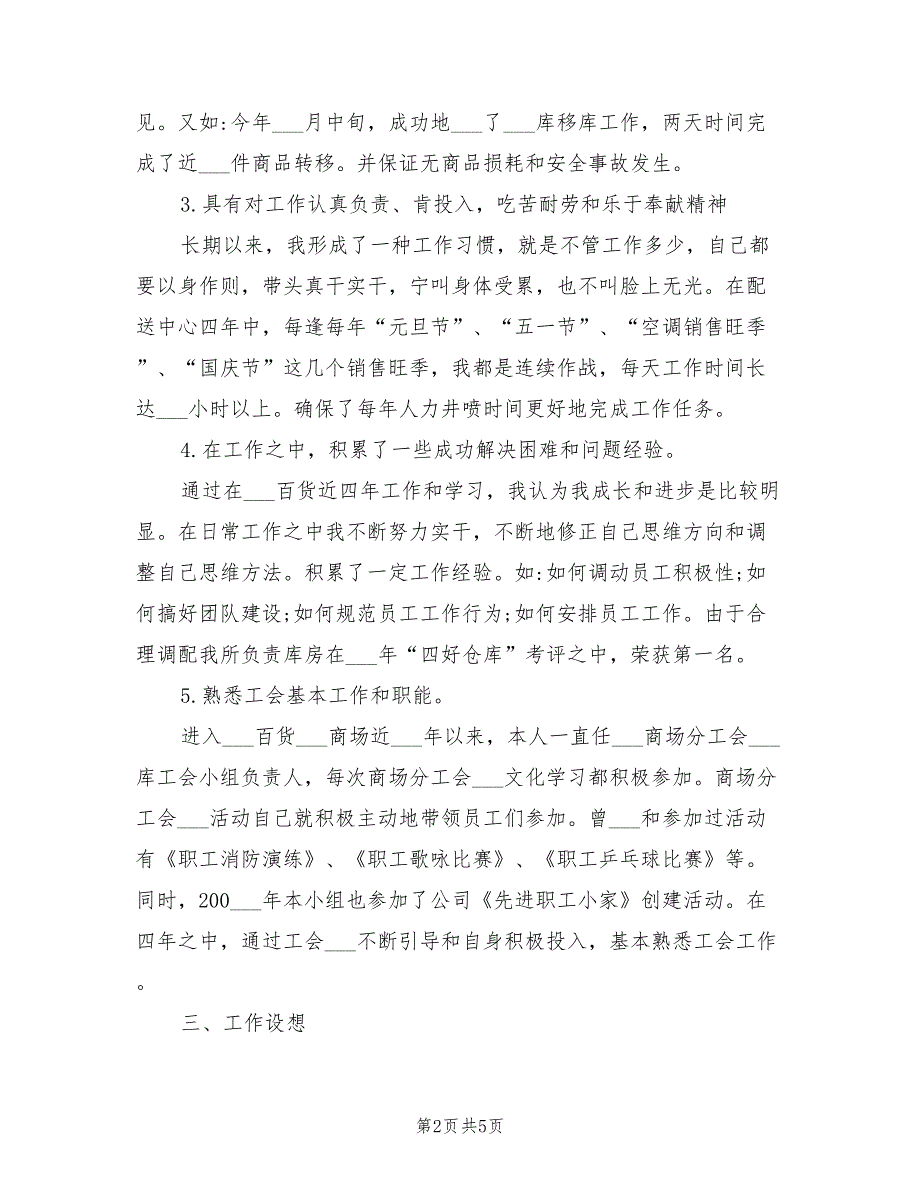 见。又如:今年___月中旬，成功地___了___库移库工作，两天时间完
成了近___件商品转移。并保证无商品损耗和安全事故发生。
3.具有对工作认真负责、肯投入，吃苦耐劳和乐于奉献精神
长期以来，我形成了一种工作习惯，就是不管工作多少，自己都
要以身作则，带头真干实干，宁叫身体受累，也不叫脸上无光。在配
送中心四年中，每逢每年“元旦节”、“五一节”、“空调销售旺季
”、“国庆节”这几个销售旺季，我都是连续作战，每天工作时间长
达___小时以上。确保了每年人力井喷时间更好地完成工作任务。
4.在工作之中，积累了一些成功解决困难和问题经验。
通过在___百货近四年工作和学习，我认为我成长和进步是比较明
显。在日常工作之中我不断努力实干，不断地修正自己思维方向和调
整自己思维方法。积累了一定工作经验。如:如何调动员工积极性;如
何搞好团队建设;如何规范员工工作行为;如何安排员工工作。由于合
理调配我所负责库房在___年“四好仓库”考评之中，荣获第一名。
5.熟悉工会基本工作和职能。
进入___百货___商场近___年以来，本人一直任___商场分工会___
库工会小组负责人，每次商场分工会___文化学习都积极参加。商场分
工会___活动自己就积极主动地带领员工们参加。曾___和参加过活动
有《职工消防演练》、《职工歌咏比赛》、《职工乒乓球比赛》等。
同时，200___年本小组也参加了公司《先进职工小家》创建活动。在
四年之中，通过工会___不断引导和自身积极投入，基本熟悉工会工作
。
三、工作设想
第2页共5页